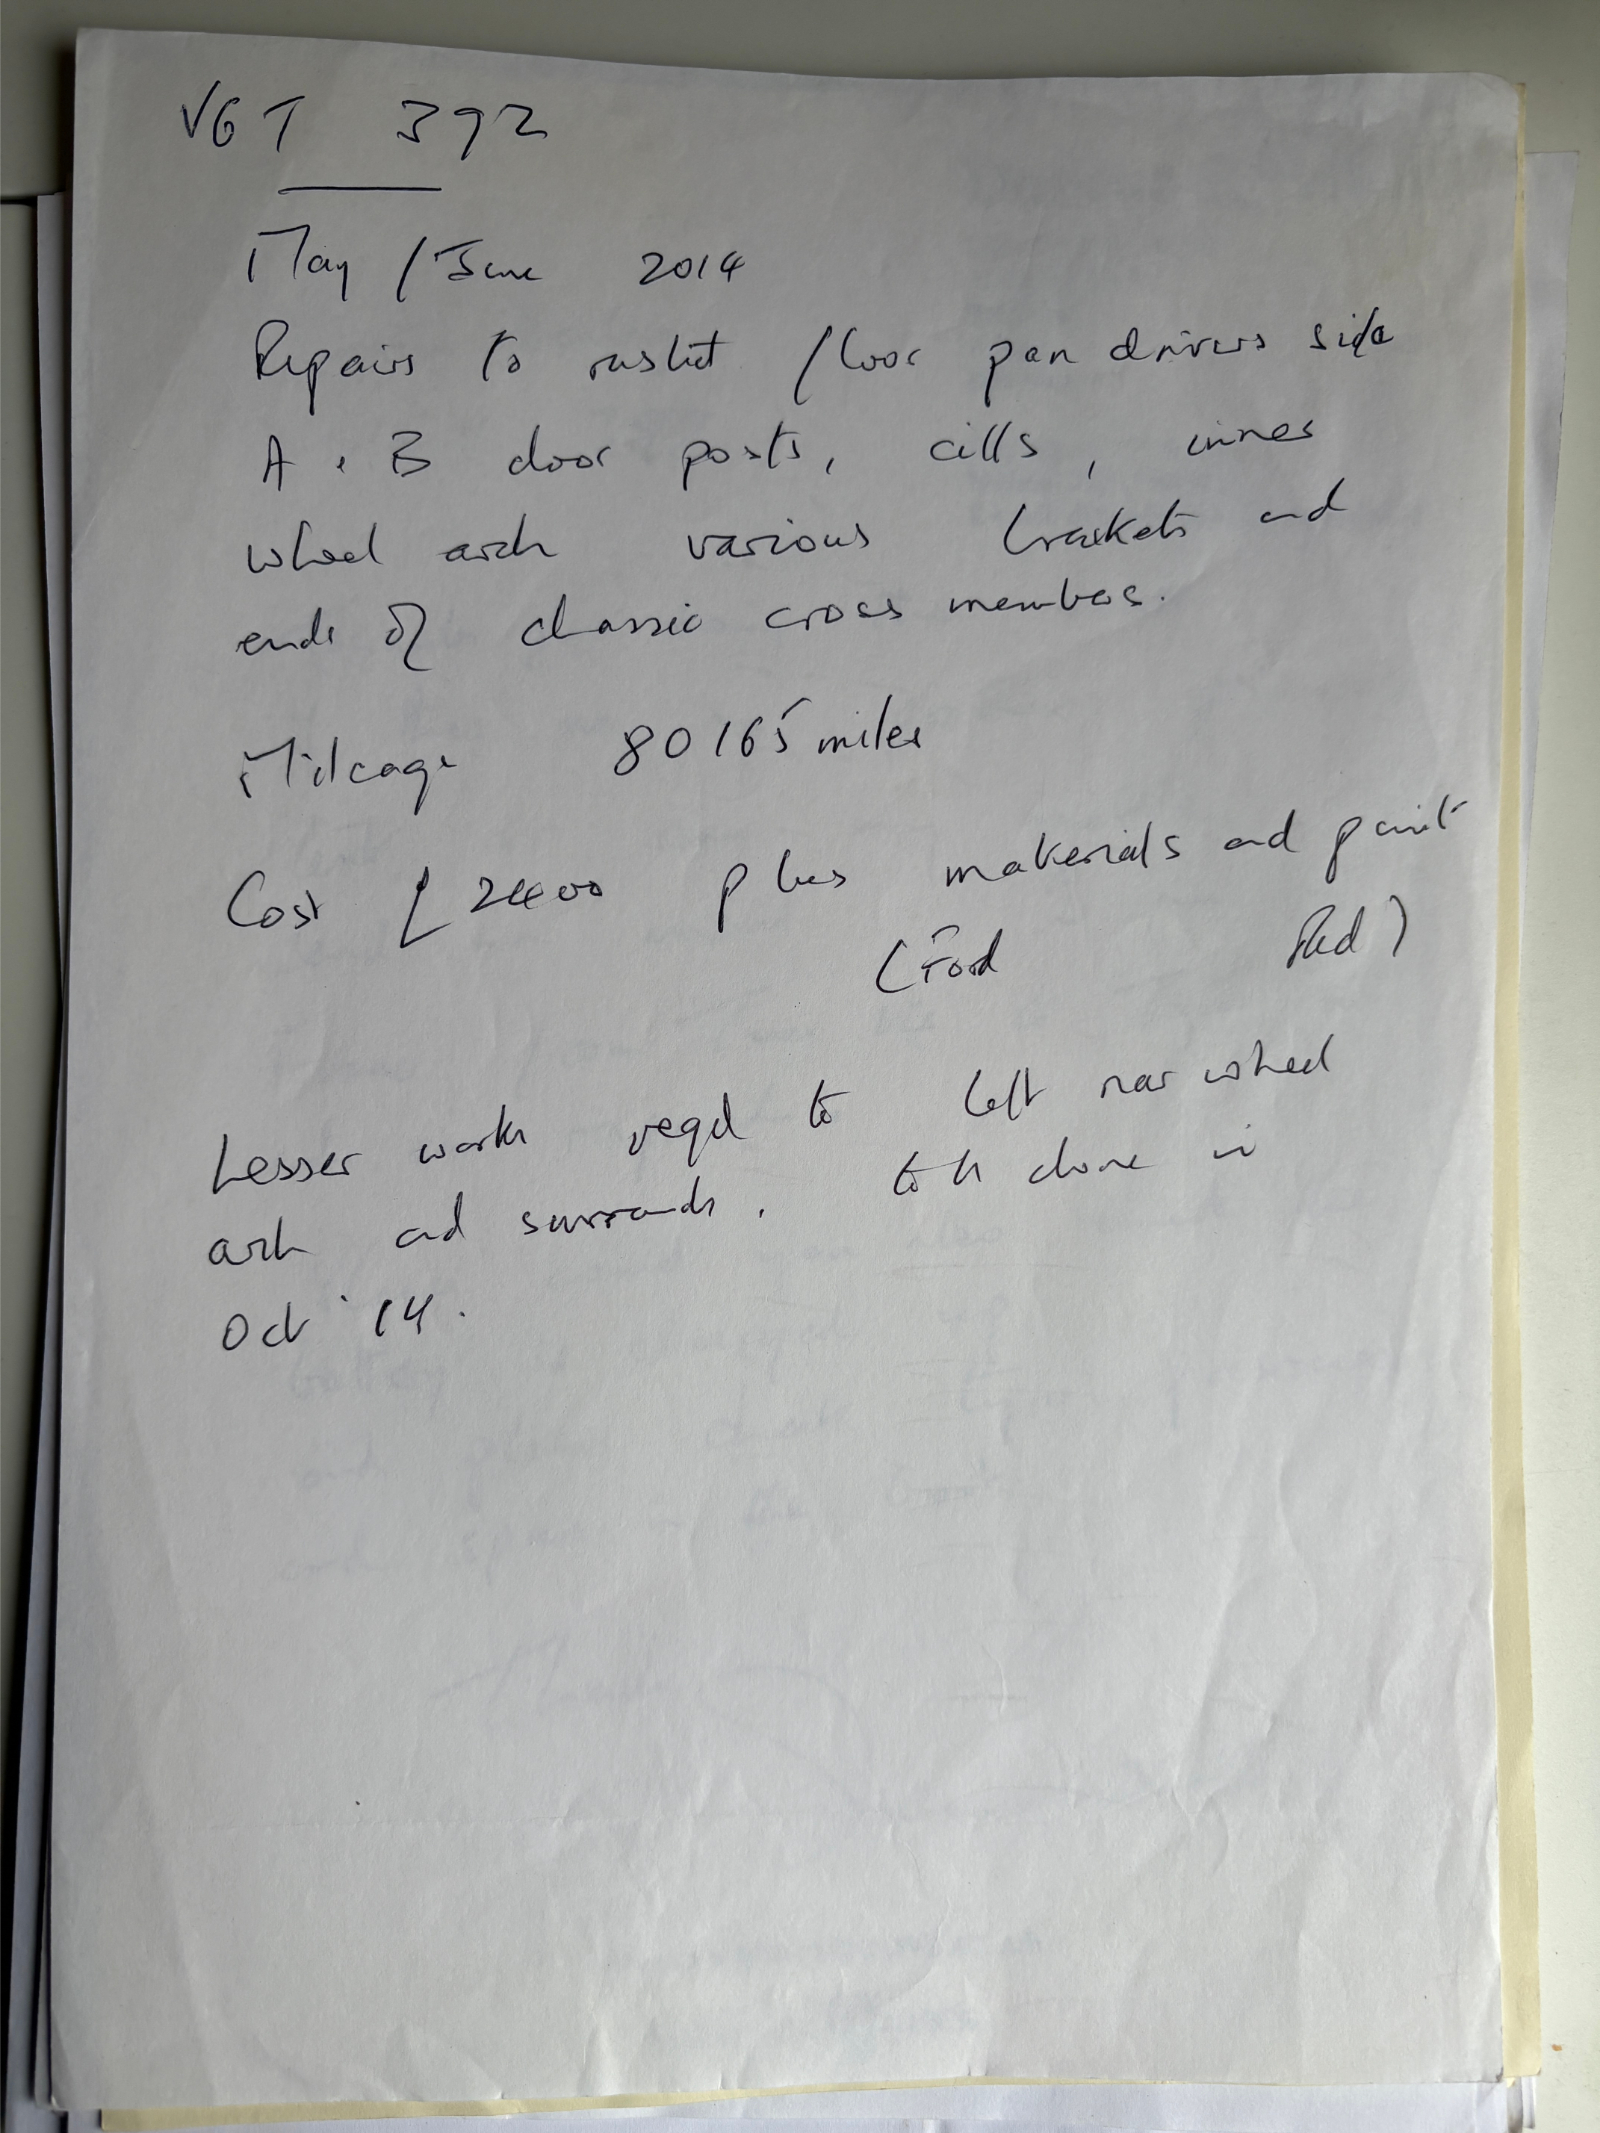 VGT 392
May / June 2014
Repairs to rusted floor pan drivers side
A + B door posts, cills, inner
wheel arch various brackets and
ends of chassic cross members.
Mileage 80165 miles
Cost £2400 plus materials and paint
(Ford Red)
Lesser work reqd to left rear wheel
arch and surrounds. to be done in
Oct '14.